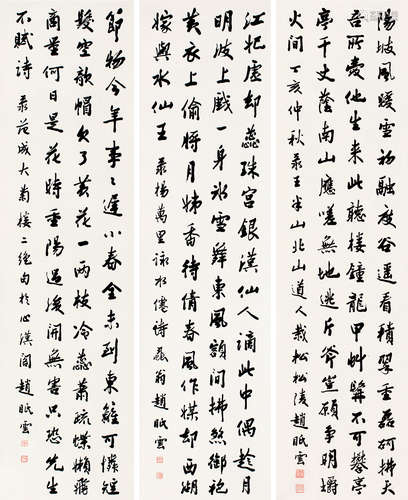 陽坡風暖雪初融度谷遙看積翠重磊砢拂天
吾所愛他生來此聽樓鐘龍甲虯髯不可攀亭
亭千丈蔭南山應嗟無地逃斤斧豈願爭明爝
火間 丁亥仲秋录王半山北山道人栽松松陵趙眠雲
江妃虛却蕊珠宮銀漢仙人謫此中偶趁月
明波上戲一身冰雪舞東風額間拂煞御袍
黃衣上偷將月姊香待倩春風作媒却西湖
嫁與水仙王 录楊萬里詠水僊詩 翁趙眠雲
節物今年事〻遲小春全未到東籬可憐短
髮空欹帽欠了黃花一兩枝冷蕊蕭疏蝶懶飛
商量何日是花時重陽過後開無害只恐先生
不賦詩 录范成大菊樓二絕句於心漢閣趙眠雲